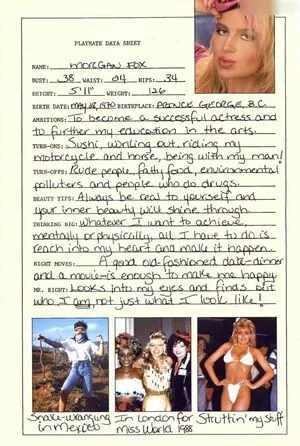 PLAYMATE DATA SHEET
NAME: MORGAN FOX
BUST: 38 WAIST: 24 HIPS: 34
HEIGHT: 5'11" WEIGHT: 126
BIRTH DATE: May 18, 1970 BIRTHPLACE: PRINCE GEORGE, B.C.
AMBITIONS: To become a successful actress and
to further my education in the arts.
TURN-ONS: Sushi, working out, riding my
motorcycle and horse, being with my man!
TURN-OFFS: Rude people, fatty food, environmental
polluters and people who do drugs.
BEAUTY TIPS: Always be real to yourself and
your inner beauty will shine through.
THINKING BIG: Whatever I want to achieve,
mentally or physically, all I have to do is
reach into my heart and make it happen.
NIGHT MOVES: A good old-fashioned date-dinner
and a movie-is enough to make me happy.
MR. RIGHT: Looks into my eyes and finds out
who I am, not just what I look like!
Snake-wrangling
in Mexico
In London for
Miss World 1988
Struttin' my stuff